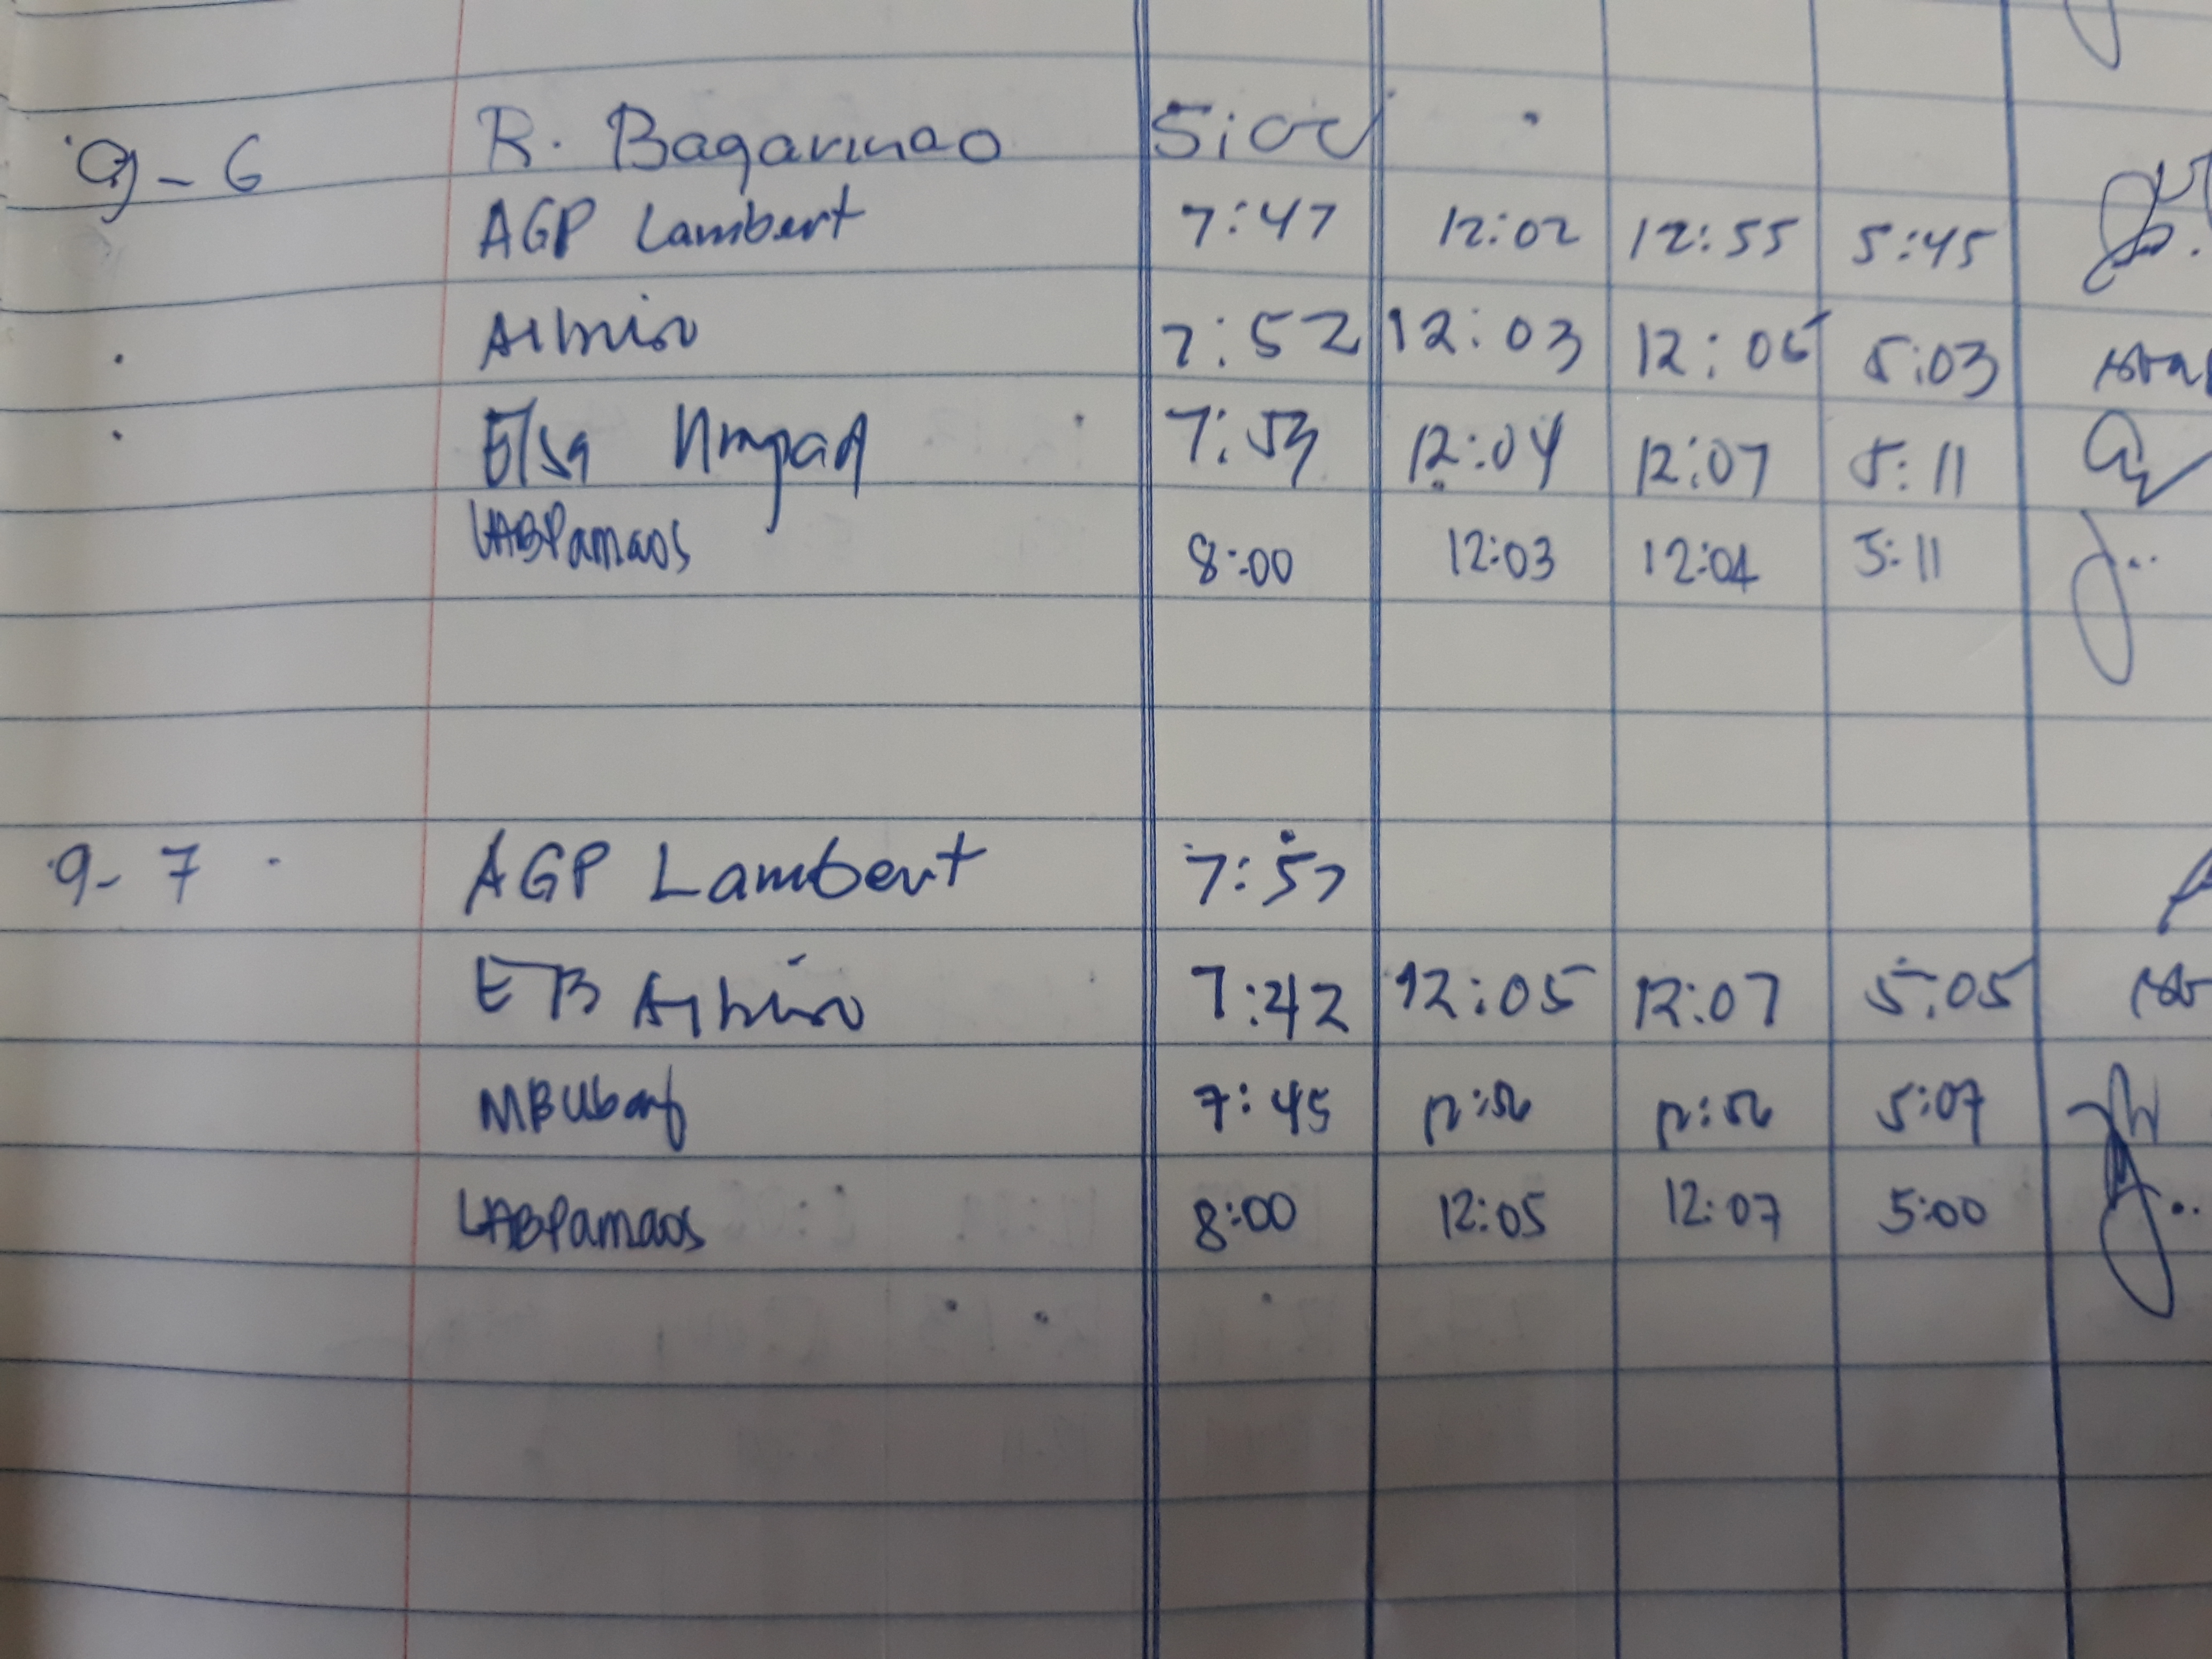 9-6 R. Bagarinao 5:00
AGP Lambert 7:47 12:02 12:55 5:45
Albino 7:52 12:03 12:05 5:03
Elsa 7:53 12:04 12:07 5:11
LABPamaos 8:00 12:03 12:04 5:11
9-7 AGP Lambert 7:57
ETB Albino 7:42 12:05 12:07 5:05
7:45 5:07
LABPamaos 8:00 12:05 12:07 5:00